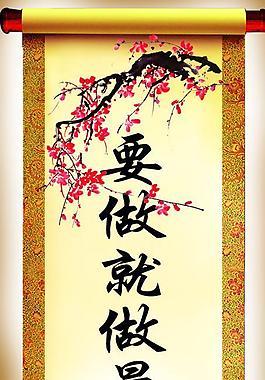 要做就做